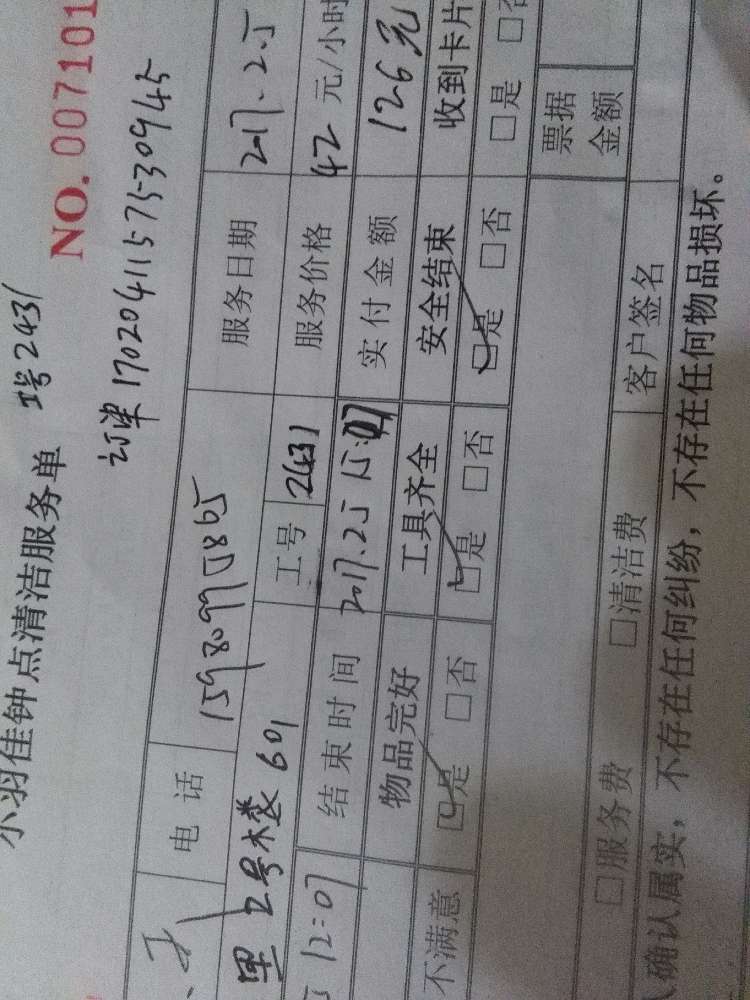 小羽佳钟点清洁服务单 工号2431 NO. 007101
订单 1702041157530945
电话 服务日期 217.2.5
里2号楼601 工号 2431 服务价格 42 元/小时
12:07 结束时间 2017.2.5 15:07 实付金额 126元
物品完好 工具齐全 安全结束 收到卡片
不满意 □是 □否 □是 □否 □是 □否 □是 □否
票据金额
□服务费 □清洁费 客户签名
确认属实，不存在任何纠纷，不存在任何物品损坏。